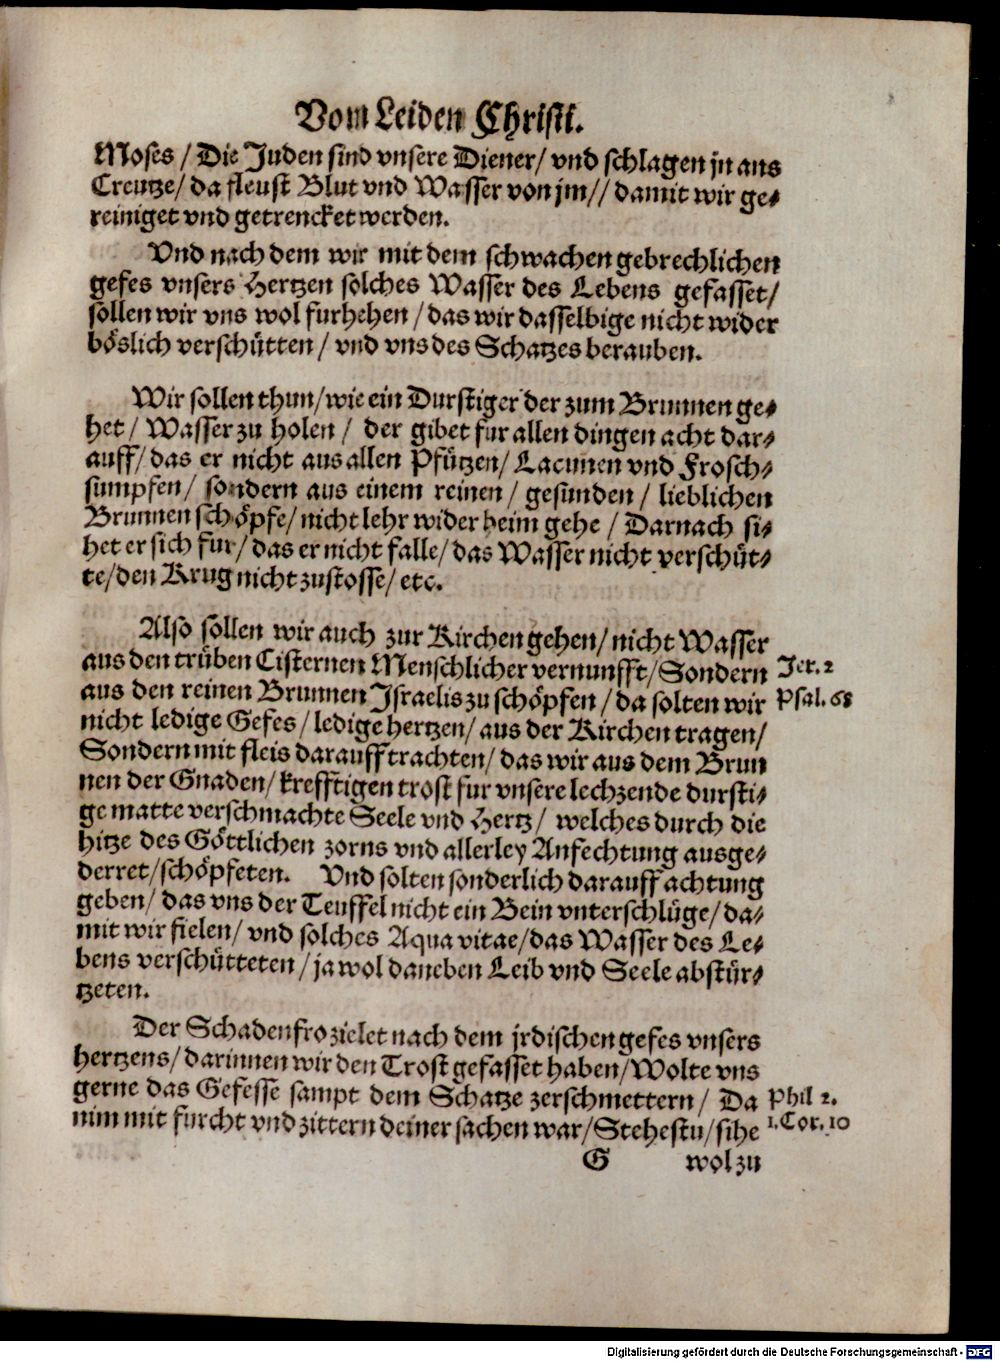 Vom Leiden Christi.
Moses / Die Juden sind vnsere Diener / vnd schlagen jn ans
Creutze / da fleust Blut vnd Wasser von jm // damit wir ge-
reiniget vnd getrencket werden.
Vnd nach dem wir mit dem schwachen gebrechlichen
gefes vnsers Hertzen solches Wasser des Lebens gefasset /
sollen wir vns wol furhehen / das wir dasselbige nicht wider
böslich verschütten / vnd vns des Schatzes berauben.
Wir sollen thun / wie ein Durstiger der zum Brunnen ge-
het / Wasser zu holen / der gibet fur allen dingen acht dar-
auff / das er nicht aus allen Pfützen / Lacunen vnd Frosch-
sumpfen / sondern aus einem reinen / gesunden / lieblichen
Brunnen schöpfe / nicht lehr wider heim gehe / Darnach si-
het er sich fur / das er nicht falle / das Wasser nicht verschüt-
te / den Krug nicht zustosse / etc.
Also sollen wir auch zur Kirchen gehen / nicht Wasser
aus den trüben Cisternen Menschlicher vernunfft / Sondern Jer. 2
aus den reinen Brunnen Israelis zu schöpfen / da solten wir Psal. 68
nicht ledige Gefes / ledige hertzen / aus der Kirchen tragen /
Sondern mit fleis darauff trachten / das wir aus dem Brun
nen der Gnaden / krefftigen trost fur vnsere lechzende dursti-
ge matte verschmachte Seele vnd Hertz / welches durch die
hitze des Göttlichen zorns vnd allerley Anfechtung ausge-
derret / schöpfeten. Vnd solten sonderlich darauff achtung
geben / das vns der Teuffel nicht ein Bein vnterschlüge / da-
mit wir fielen / vnd solches Aqua vitae / das Wasser des Le-
bens verschütteten / ja wol daneben Leib vnd Seele abstür-
tzeten.
Der Schadenfro zielet nach dem jrdischen gefes vnsers
hertzens / darinnen wir den Trost gefasset haben / Wolte vns
gerne das Gefesse sampt dem Schatze zerschmettern / Da Phil 2.
nim mit furcht vnd zittern deiner sachen war / Stehestu / sihe 1. Cor. 10
G wol zu
Digitalisierung gefördert durch die Deutsche Forschungsgemeinschaft - DFG